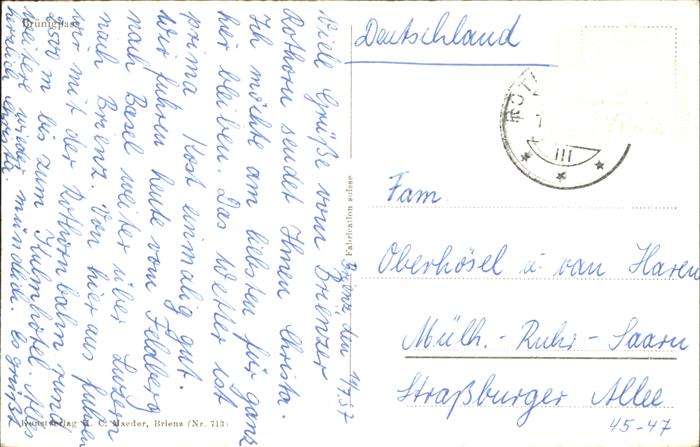 Brünigpass
Viele Grüße vom Brienzer
Rothorn sendet Ihnen Christa.
Ich möchte am liebsten für ganz
hier bleiben. Das Wetter ist
prima Kost einmalig gut.
Wir fuhren heute vom Feldberg
nach Basel weiter über Luzern
nach Brienz. Von hier aus fuhren
wir mit der Rothornbahn rund
2500 m bis zum Kulmhotel. Alles
weitere wieder mündlich. Es grüßt
Christa.
Brienz den 14757
Fabrication suisse
Kunstverlag H. C. Maeder, Brienz (Nr. 713)
Deutschland
III
Fam
Oberhösel u. van Haren
Mülh.-Ruhr-Saarn
Straßburger Allee
45-47